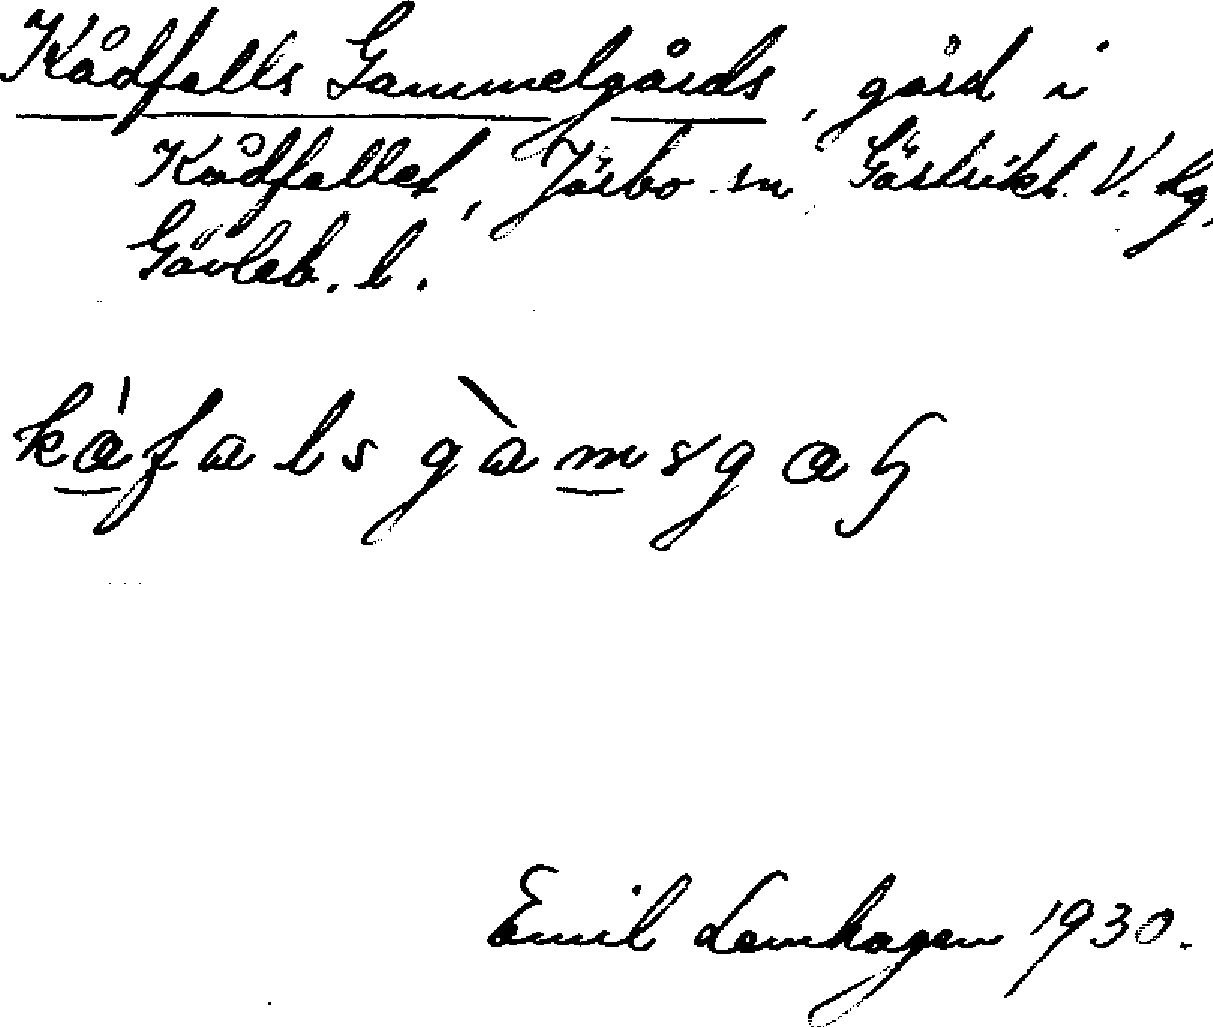 Kådfalls Gammelgårds, gård i
Kådfallet, Järbo sn Gästrikl. V. hg,
Gävleb. l.
Emil Lenhagen 1930.